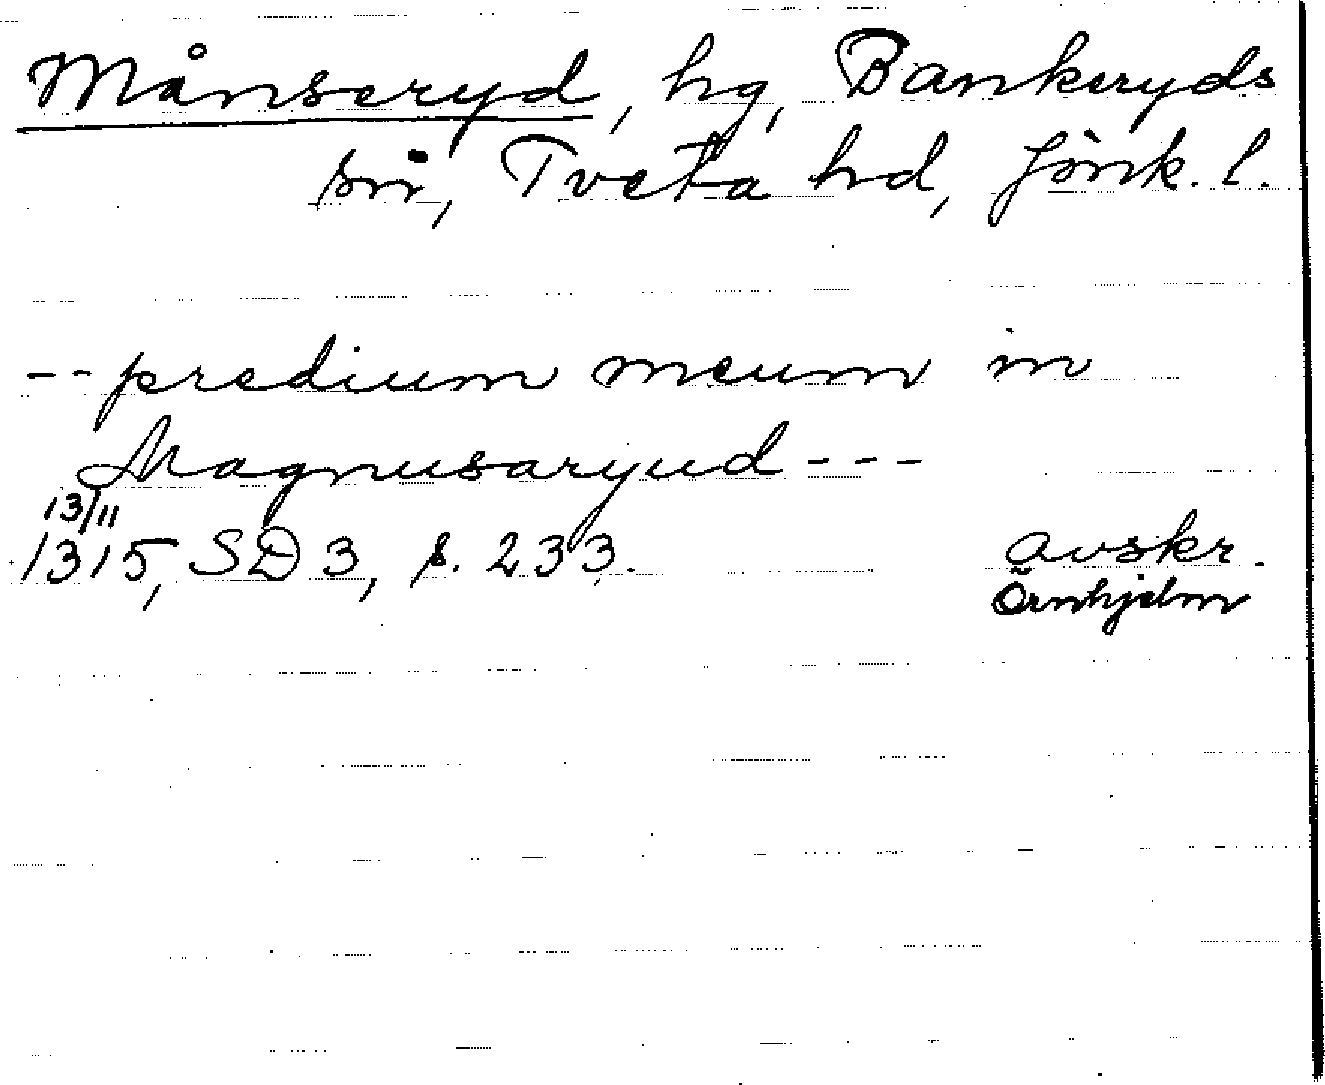 Månseryd, hg, Bankeryds
sn, Tveta hd, Jönk. l.
-- predium meum in
Magnusaryud ---
13/11
1315, SD 3, s. 233.
avskr.
Örnhjelm